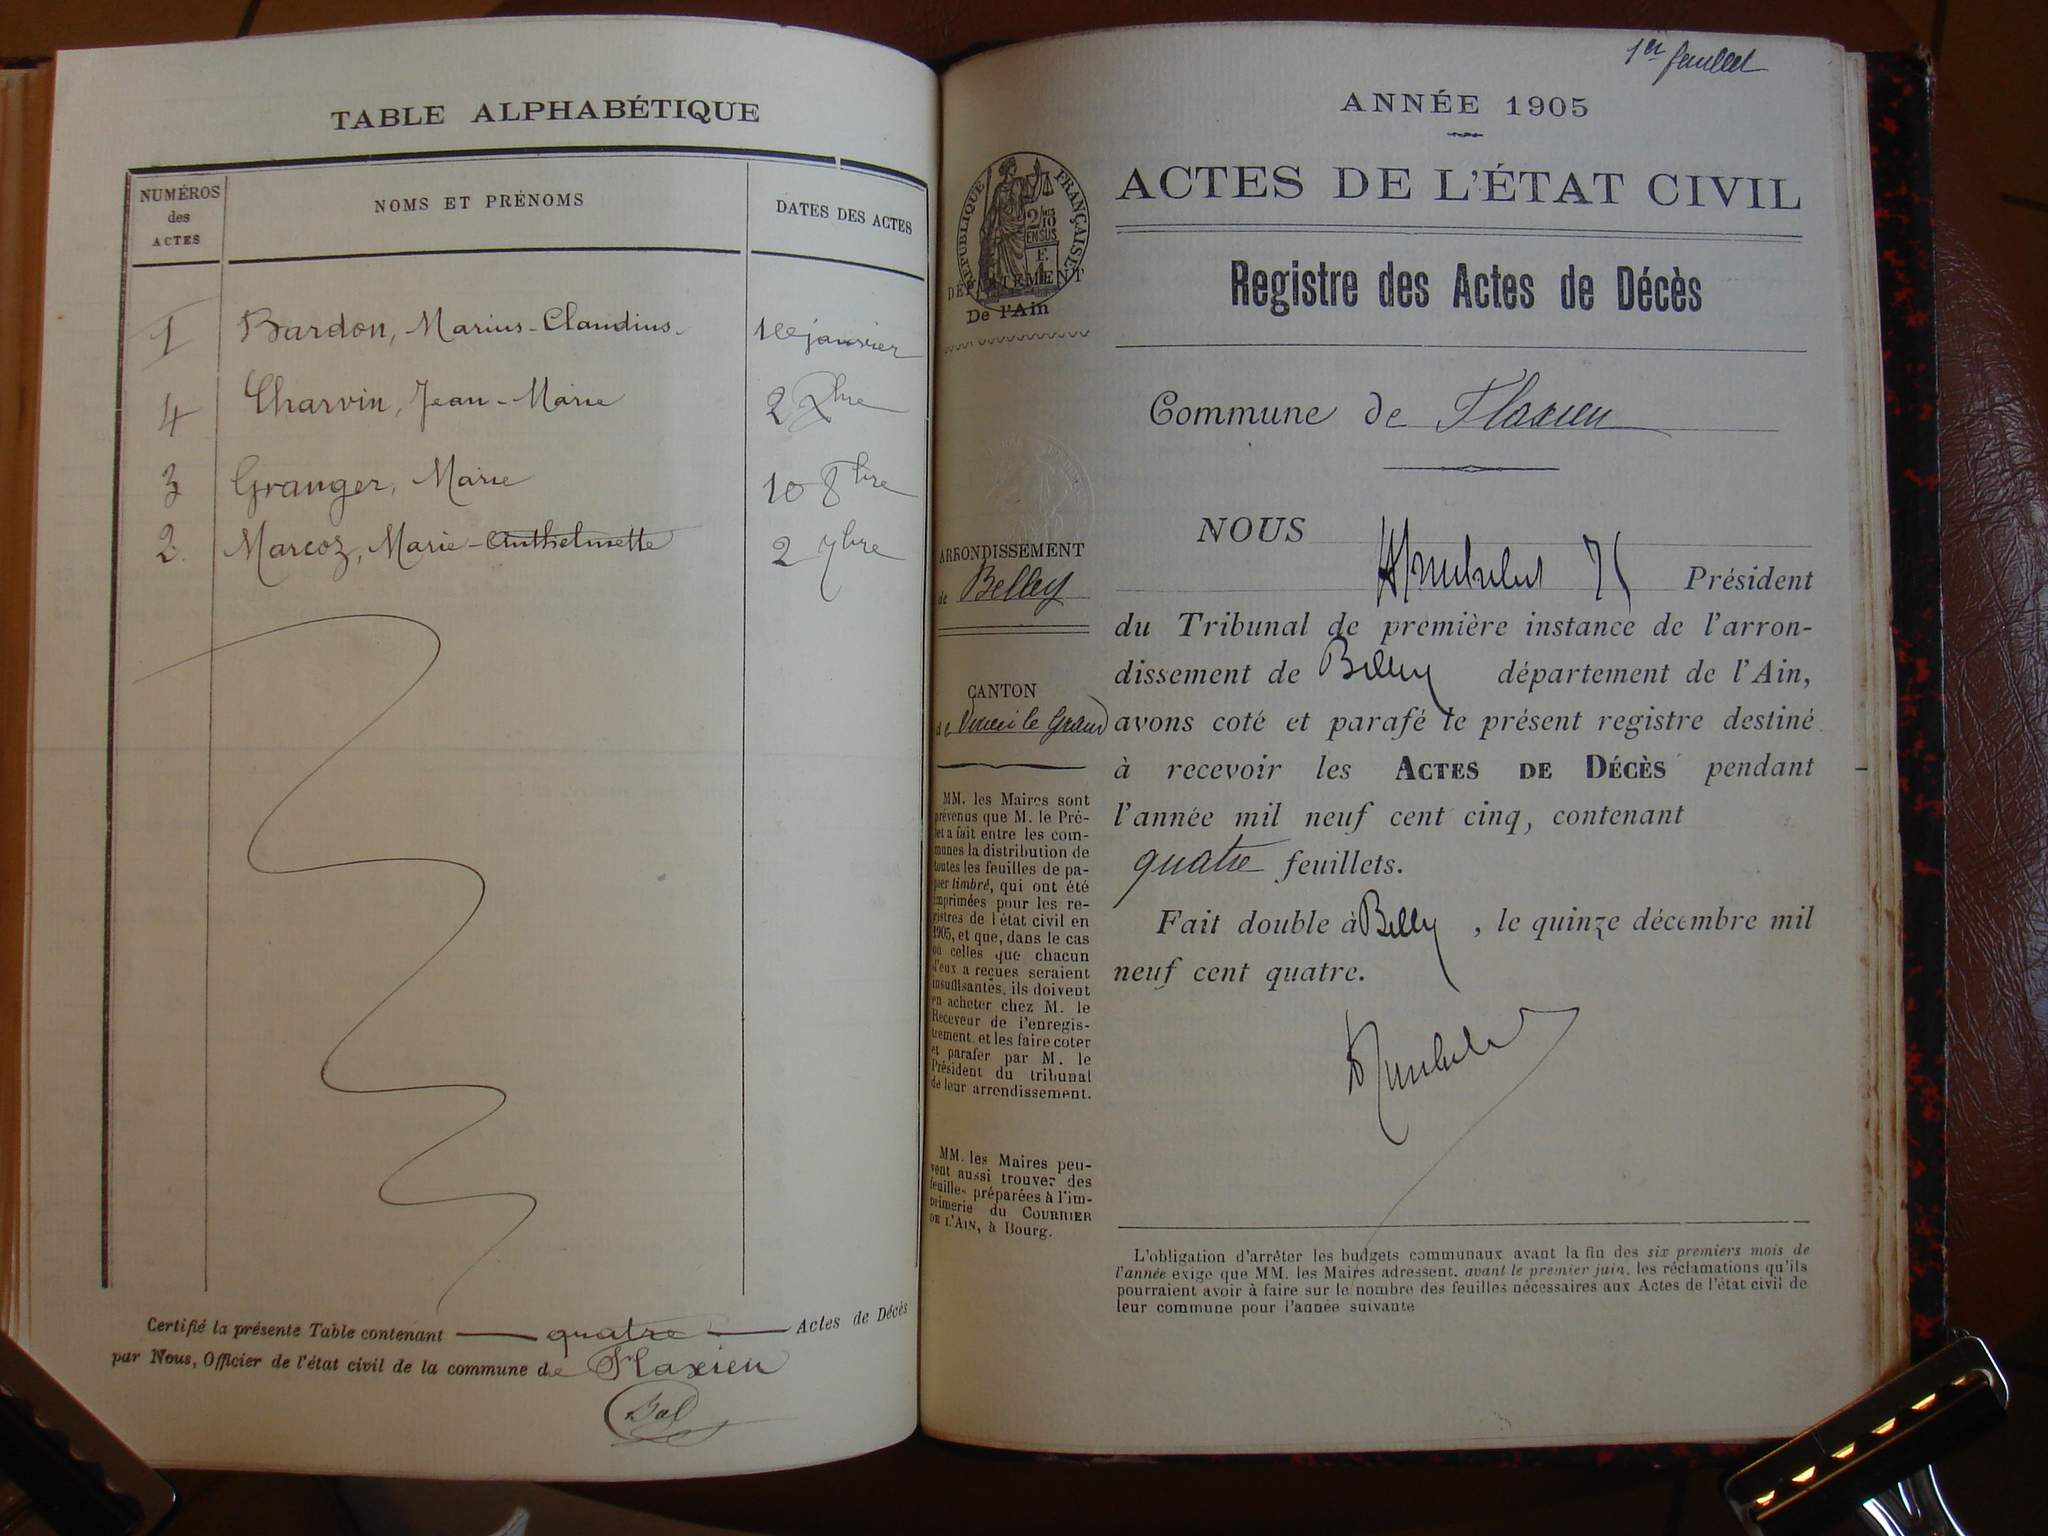 TABLE ALPHABÉTIQUE
NUMÉROS des ACTES
NOMS ET PRÉNOMS
DATES DES ACTES
1 Bardon, Marius-Claudius. 1er janvier
4 Charvin, Jean-Marie 2 Xbre
3 Granger, Marie 10 8bre
2 Marcoz, Marie-Anthelmette 2 7bre
Certifié la présente Table contenant quatre Actes de Décès
par Nous, Officier de l'état civil de la commune de Flaxieu
Bal
1er feuillet
ANNÉE 1905
ACTES DE L'ÉTAT CIVIL
Registre des Actes de Décès
RÉPUBLIQUE FRANÇAISE
DÉPARTEMENT
De l'Ain
Commune de Flaxieu
ARRONDISSEMENT
de Belley
CANTON
de Virieu le Grand
MM. les Maires sont
prévenus que M. le Pré-
fet a fait entre les com-
munes la distribution de
toutes les feuilles de pa-
pier timbré, qui ont été
imprimées pour les re-
gistres de l'état civil en
1905, et que, dans le cas
où celles que chacun
d'eux a reçues seraient
insuffisantes, ils doivent
en acheter chez M. le
Receveur de l'enregis-
trement, et les faire coter
et parafer par M. le
Président du tribunal
de leur arrondissement.
MM. les Maires peu-
vent aussi trouver des
feuilles préparées à l'im-
primerie du COURRIER
DE L'AIN, à Bourg.
NOUS
Président
du Tribunal de première instance de l'arron-
dissement de Belley département de l'Ain,
avons coté et parafé le présent registre destiné
à recevoir les ACTES DE DÉCÈS pendant
l'année mil neuf cent cinq, contenant
quatre feuillets.
Fait double à Belley, le quinze décembre mil
neuf cent quatre.
L'obligation d'arrêter les budgets communaux avant la fin des six premiers mois de
l'année exige que MM. les Maires adressent, avant le premier juin, les réclamations qu'ils
pourraient avoir à faire sur le nombre des feuilles nécessaires aux Actes de l'état civil de
leur commune pour l'année suivante